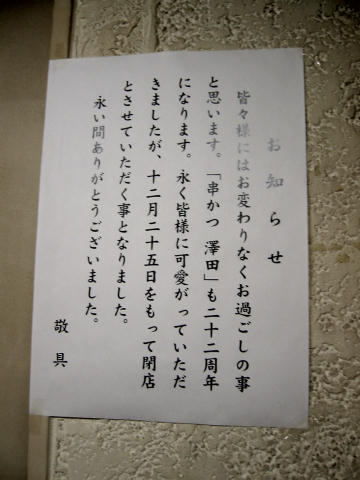 お知らせ
皆々様にはお変わりなくお過ごしの事
と思います。「串かつ 澤田」も二十二周年
になります。永く皆様に可愛がっていただ
きましたが、十二月二十五日をもって閉店
とさせていただく事となりました。
永い間ありがとうございました。
敬具